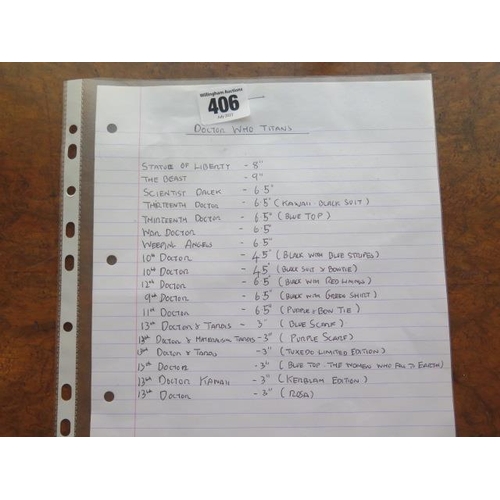 Willingham Auctions
406
July 2022
DOCTOR WHO TITANS
STATUE OF LIBERTY - 8"
THE BEAST - 9"
SCIENTIST DALEK - 6.5"
THIRTEENTH DOCTOR - 6.5" (KAWAII - BLACK SUIT)
THIRTEENTH DOCTOR - 6.5" (BLUE TOP)
WAR DOCTOR - 6.5"
WEEPING ANGELS - 6.5"
10th DOCTOR - 4.5" (BLACK WITH BLUE STRIPES)
10th DOCTOR - 4.5" (BLACK SUIT & BOWTIE)
12th DOCTOR - 6.5" (BLACK WITH RED LINING)
9th DOCTOR - 6.5" (BLACK WITH GREEN SHIRT)
11th DOCTOR - 6.5" (PURPLE & BOW TIE)
13th DOCTOR & TARDIS - 3" (BLUE SCARF)
13th DOCTOR & MATERIALISING TARDIS - 3" (PURPLE SCARF)
13th DOCTOR & TARDIS - 3" (TUXEDO LIMITED EDITION)
13th DOCTOR - 3" (BLUE TOP - THE WOMEN WHO FELL TO EARTH)
13th DOCTOR KAWAII - 3" (KERBLAM EDITION)
13th DOCTOR - 3" (ROSA)